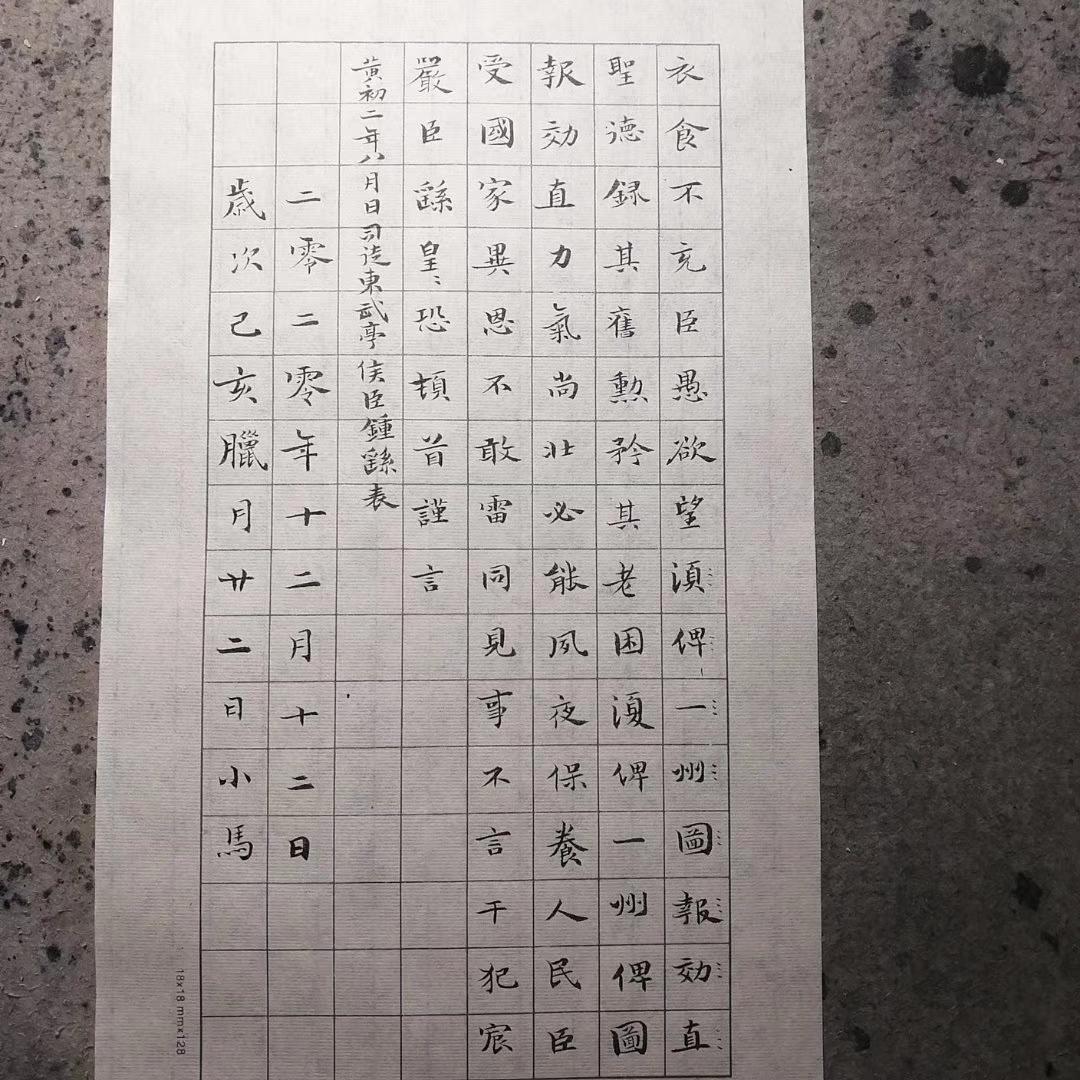 衣食不充臣愚欲望湏俾一州圖報効直
聖德録其舊勲矜其老困湏俾一州俾圖
報効直力氣尚壯必能夙夜保養人民臣
受國家異恩不敢雷同見事不言干犯宸
嚴臣繇皇〻恐頓首謹言
黃初二年八月日司徒東武亭侯臣鍾繇表
二零二零年十二月十二日
歲次己亥臘月廿二日小馬
18x18 mmx128